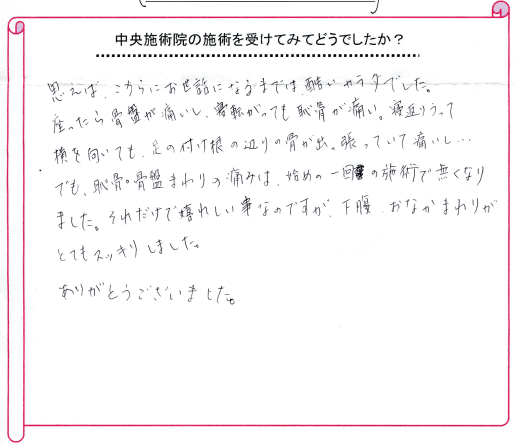 中央施術院の施術を受けてみてどうでしたか？
思えば、こちらにお世話になるまでは、酷いカラダでした。
座ったら骨盤が痛いし、寝転がっても恥骨が痛い。寝返りうって
横を向いても、足の付け根の辺りの骨が出っ張っていて痛いし…
でも、恥骨・骨盤まわりの痛みは、始めの一回の施術で無くなり
ました。それだけで嬉れしい事なのですが、下腹、おなかまわりが
とてもスッキリしました。
ありがとうございました。